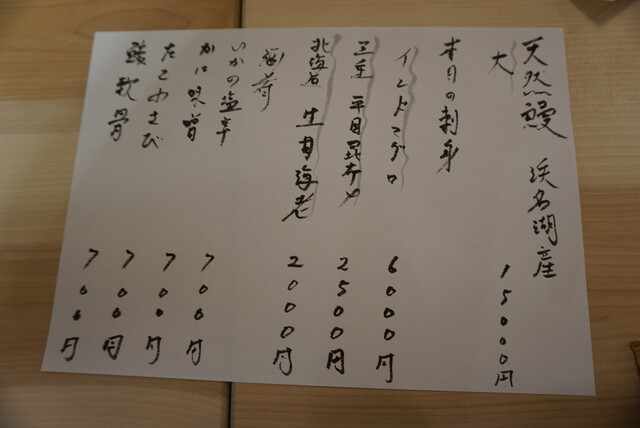 天然鰻 浜名湖産
大 15000円
本日の刺身
インドマグロ 6000円
三重 平目昆布〆 2500円
北海道 生甘海老 2000円
酒肴
いかの塩辛 700円
かに味噌 700円
たこわさび 700円
軟骨 700円